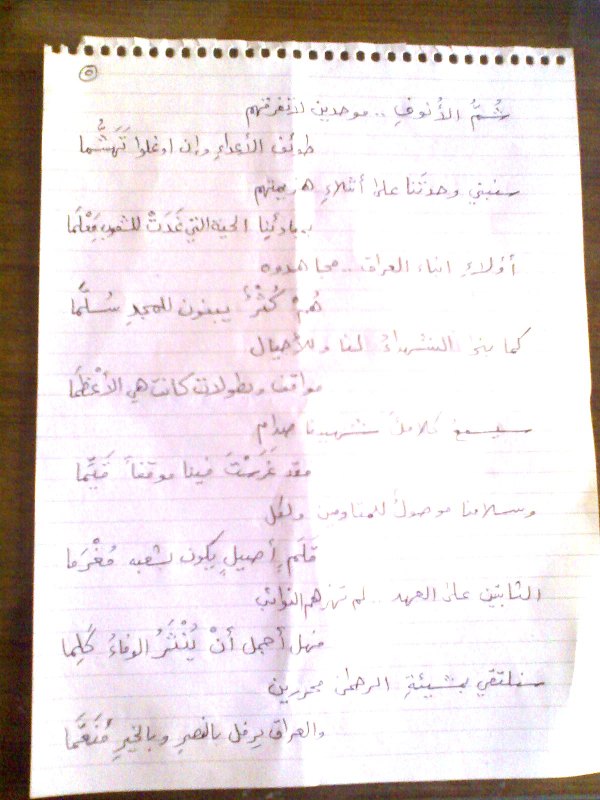 ٥
شُمُّ الأُنوفِ .. موحدين لا تفرقهم
طوائف الأعداءِ وإن اوغلوا تَهَشُّما
سنبني وحدتَنا على أشلاءِ هزيمتهم
بمبادئنِا الحية التي غَدَتْ للشعوبِ مَعْلَما
أولاءِ ابناء العراق .. مجاهدوه
هُمْ كُثْرٌ يبنون للمجدِ سُلَّما
كما بنى الشهداءُ لنا وللأجيال
مواقف وبطولات كانت هي الأعْظَما
شهيدنا صدام
فقد غَرَسْتَ فينا موقفاً قَيِّما
وسلامنا موصولٌ للمقاومين ولكل
قَلَمٍ أصيلٍ يكون لشعبه مُغْرَما
الثابتين على العهد .. لم تهزهم النوائب
فهل أجمل أنْ يُنْثَرُ الوفاءُ كَلِما
سنلتقي بمشيئةِ الرحمن محررين
والعراق يرفل بالنصرِ وبالخيرِ مُنَعَّما